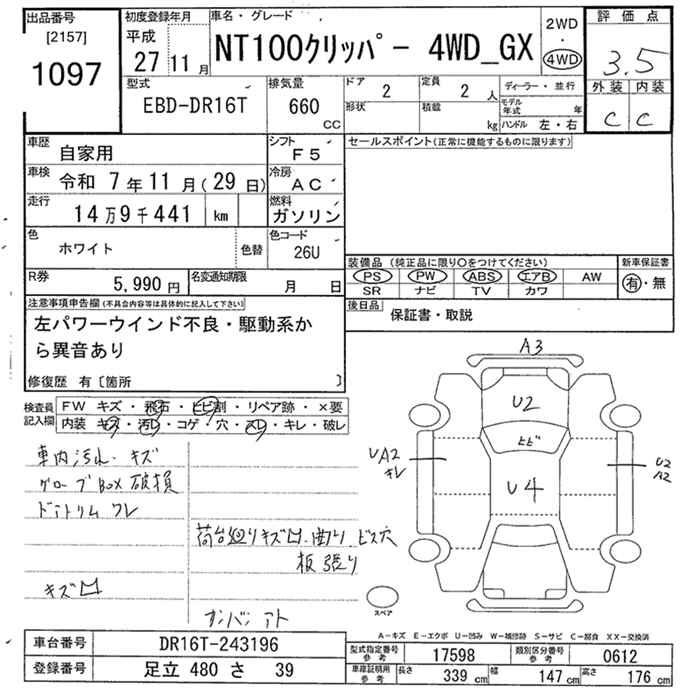 出品番号
[2157]
1097
初度登録年月
平成
27 11 月
車名・グレード
NT100クリッパー 4WD_GX
2WD
・
4WD
評価点
3.5
外装 内装
C C
型式
EBD-DR16T
排気量
660
CC
ドア
2
定員
2 人
形状
積載
kg
ディーラー・並行
モデル年式 年
ハンドル 左・右
車歴
自家用
シフト
F5
セールスポイント(正常に機能するものに限ります)
車検
令和 7 年 11 月 ( 29 日)
冷房
AC
走行
14 万 9 千 441 km
燃料
ガソリン
色
ホワイト
色替
色コード
26U
装備品 (純正品に限り○をつけてください)
新車保証書
PS PW ABS エアB AW
SR ナビ TV カワ
有・無
R券
5,990 円
名変通知期限
月 日
後日品
保証書・取説
注意事項申告欄(不具合内容等は具体的に記入して下さい)
左パワーウインド不良・駆動系か
ら異音あり
修復歴 有〔箇所 〕
検査員
記入欄
FW キズ・飛石・ヒビ割・リペア跡・×要
内装 キズ・汚レ・コゲ・穴・スレ・キレ・破レ
車内汚れ・キズ
グローブBOX破損
ドアトリムワレ
荷台廻りキズ凹・曲り ビス穴
板張り
キズ凹
カンバンアト
A3
U2
ヒビ
U4
UA2
キレ
U2
A2
スペア
A-キズ E-エクボ U-凹み W-補修跡 S-サビ C-腐食 XX-交換済
車台番号
DR16T-243196
登録番号
足立 480 さ 39
型式指定番号
参考
17598
類別区分番号
参考
0612
車庫証明用
参考
長さ
339 cm
幅
147 cm
高さ
176 cm